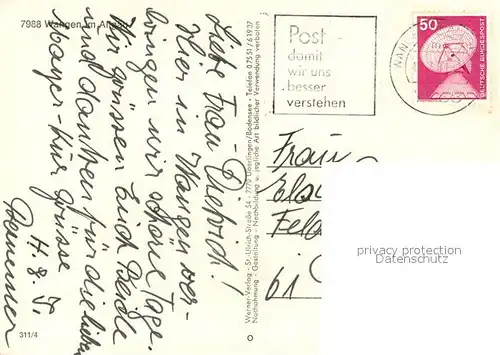 7988 Wangen im Allgäu
Liebe Frau
Hier in Wangen ver-
bringen wir schöne Tage.
Wir grüssen Euch Beide
und danken für die lieben
Grüsse
H. &
311/4
Werner-Verlag · St.-Ulrich-Straße 54 · 7770 Überlingen/Bodensee · Telefon 07551/61937
Nachahmung · Gestaltung · Nachbildung u. jegliche Art bildlicher Verwendung verboten
Post -
damit
wir uns
besser
verstehen
50
DEUTSCHE BUNDESPOST
WAN
Frau
61
privacy protection
Datenschutz